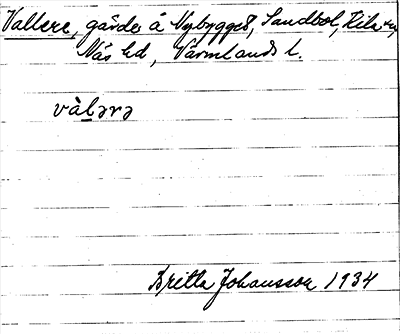 Vallere, gårdar å Nybygget, Sandbol, Kila sn,
Näs hd, Värmlands l.
vàl̲ərə
Britta Johansson 1934